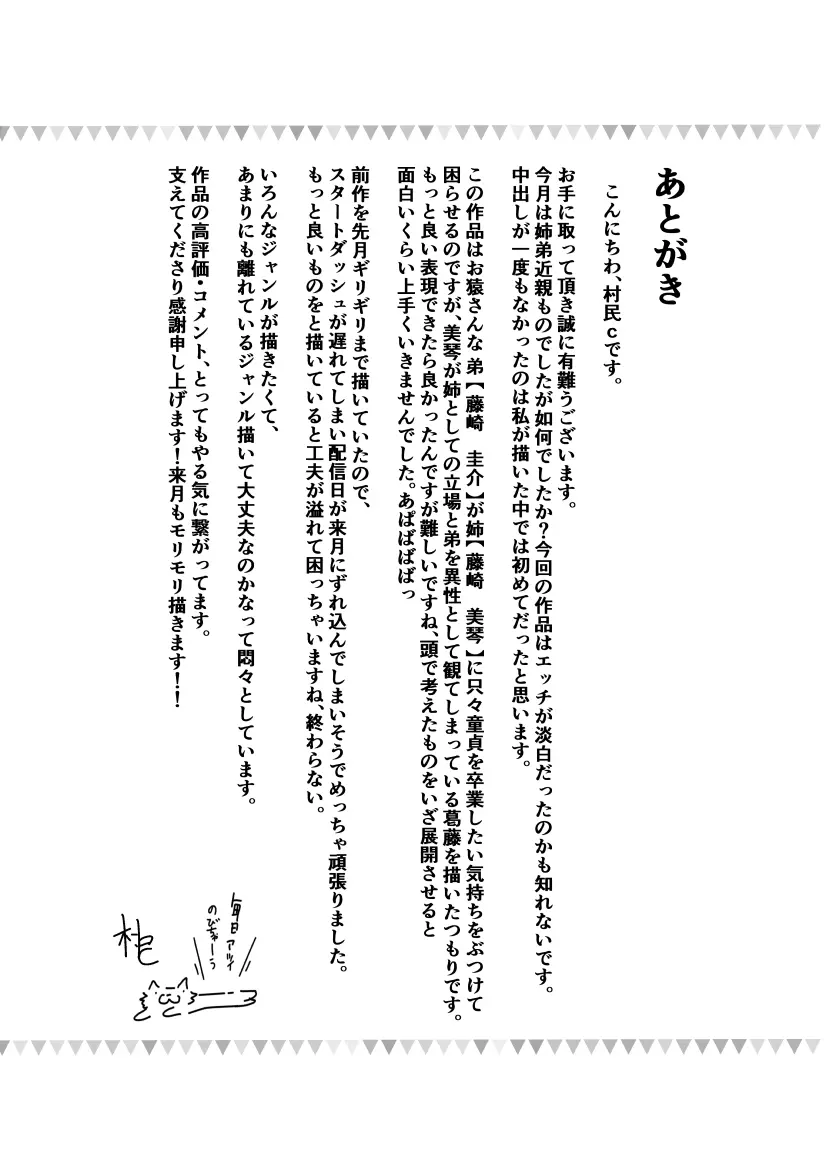 あとがき
こんにちわ、村民cです。
お手に取って頂き誠に有難うございます。
今月は姉弟近親ものでしたが如何でしたか?今回の作品はエッチが淡白だったのかも知れないです。
中出しが一度もなかったのは私が描いた中では初めてだったと思います。
この作品はお猿さんな 弟【藤崎 圭介】が姉【藤崎 美琴】に只々童貞を卒業したい気持ちをぶつけて
困らせるのですが、美琴が姉としての立場と弟を異性として観てしまっている葛藤を描いたつもりです。
もっと良い表現できたら良かったんですが難しいですね、頭で考えたものをいざ展開させると
面白いくらい上手くいきませんでした。あぱばばばっ
前作を先月ギリギリまで描いていたので、
スタートダッシュが遅れてしまい配信日が来月にずれ込んでしまいそうでめっちゃ頑張りました。
もっと良いものをと描いていると工夫が溢れて困っちゃいますね、終わらない。
いろんなジャンルが描きたくて、
あまりにも離れているジャンル描いて大丈夫なのかなって悶々としています。
作品の高評価・コメント、とってもやる気に繋がってます。
支えてくださり感謝申し上げます!来月もモリモリ描きます!!
毎日アツイ
のびちゃーう
村民